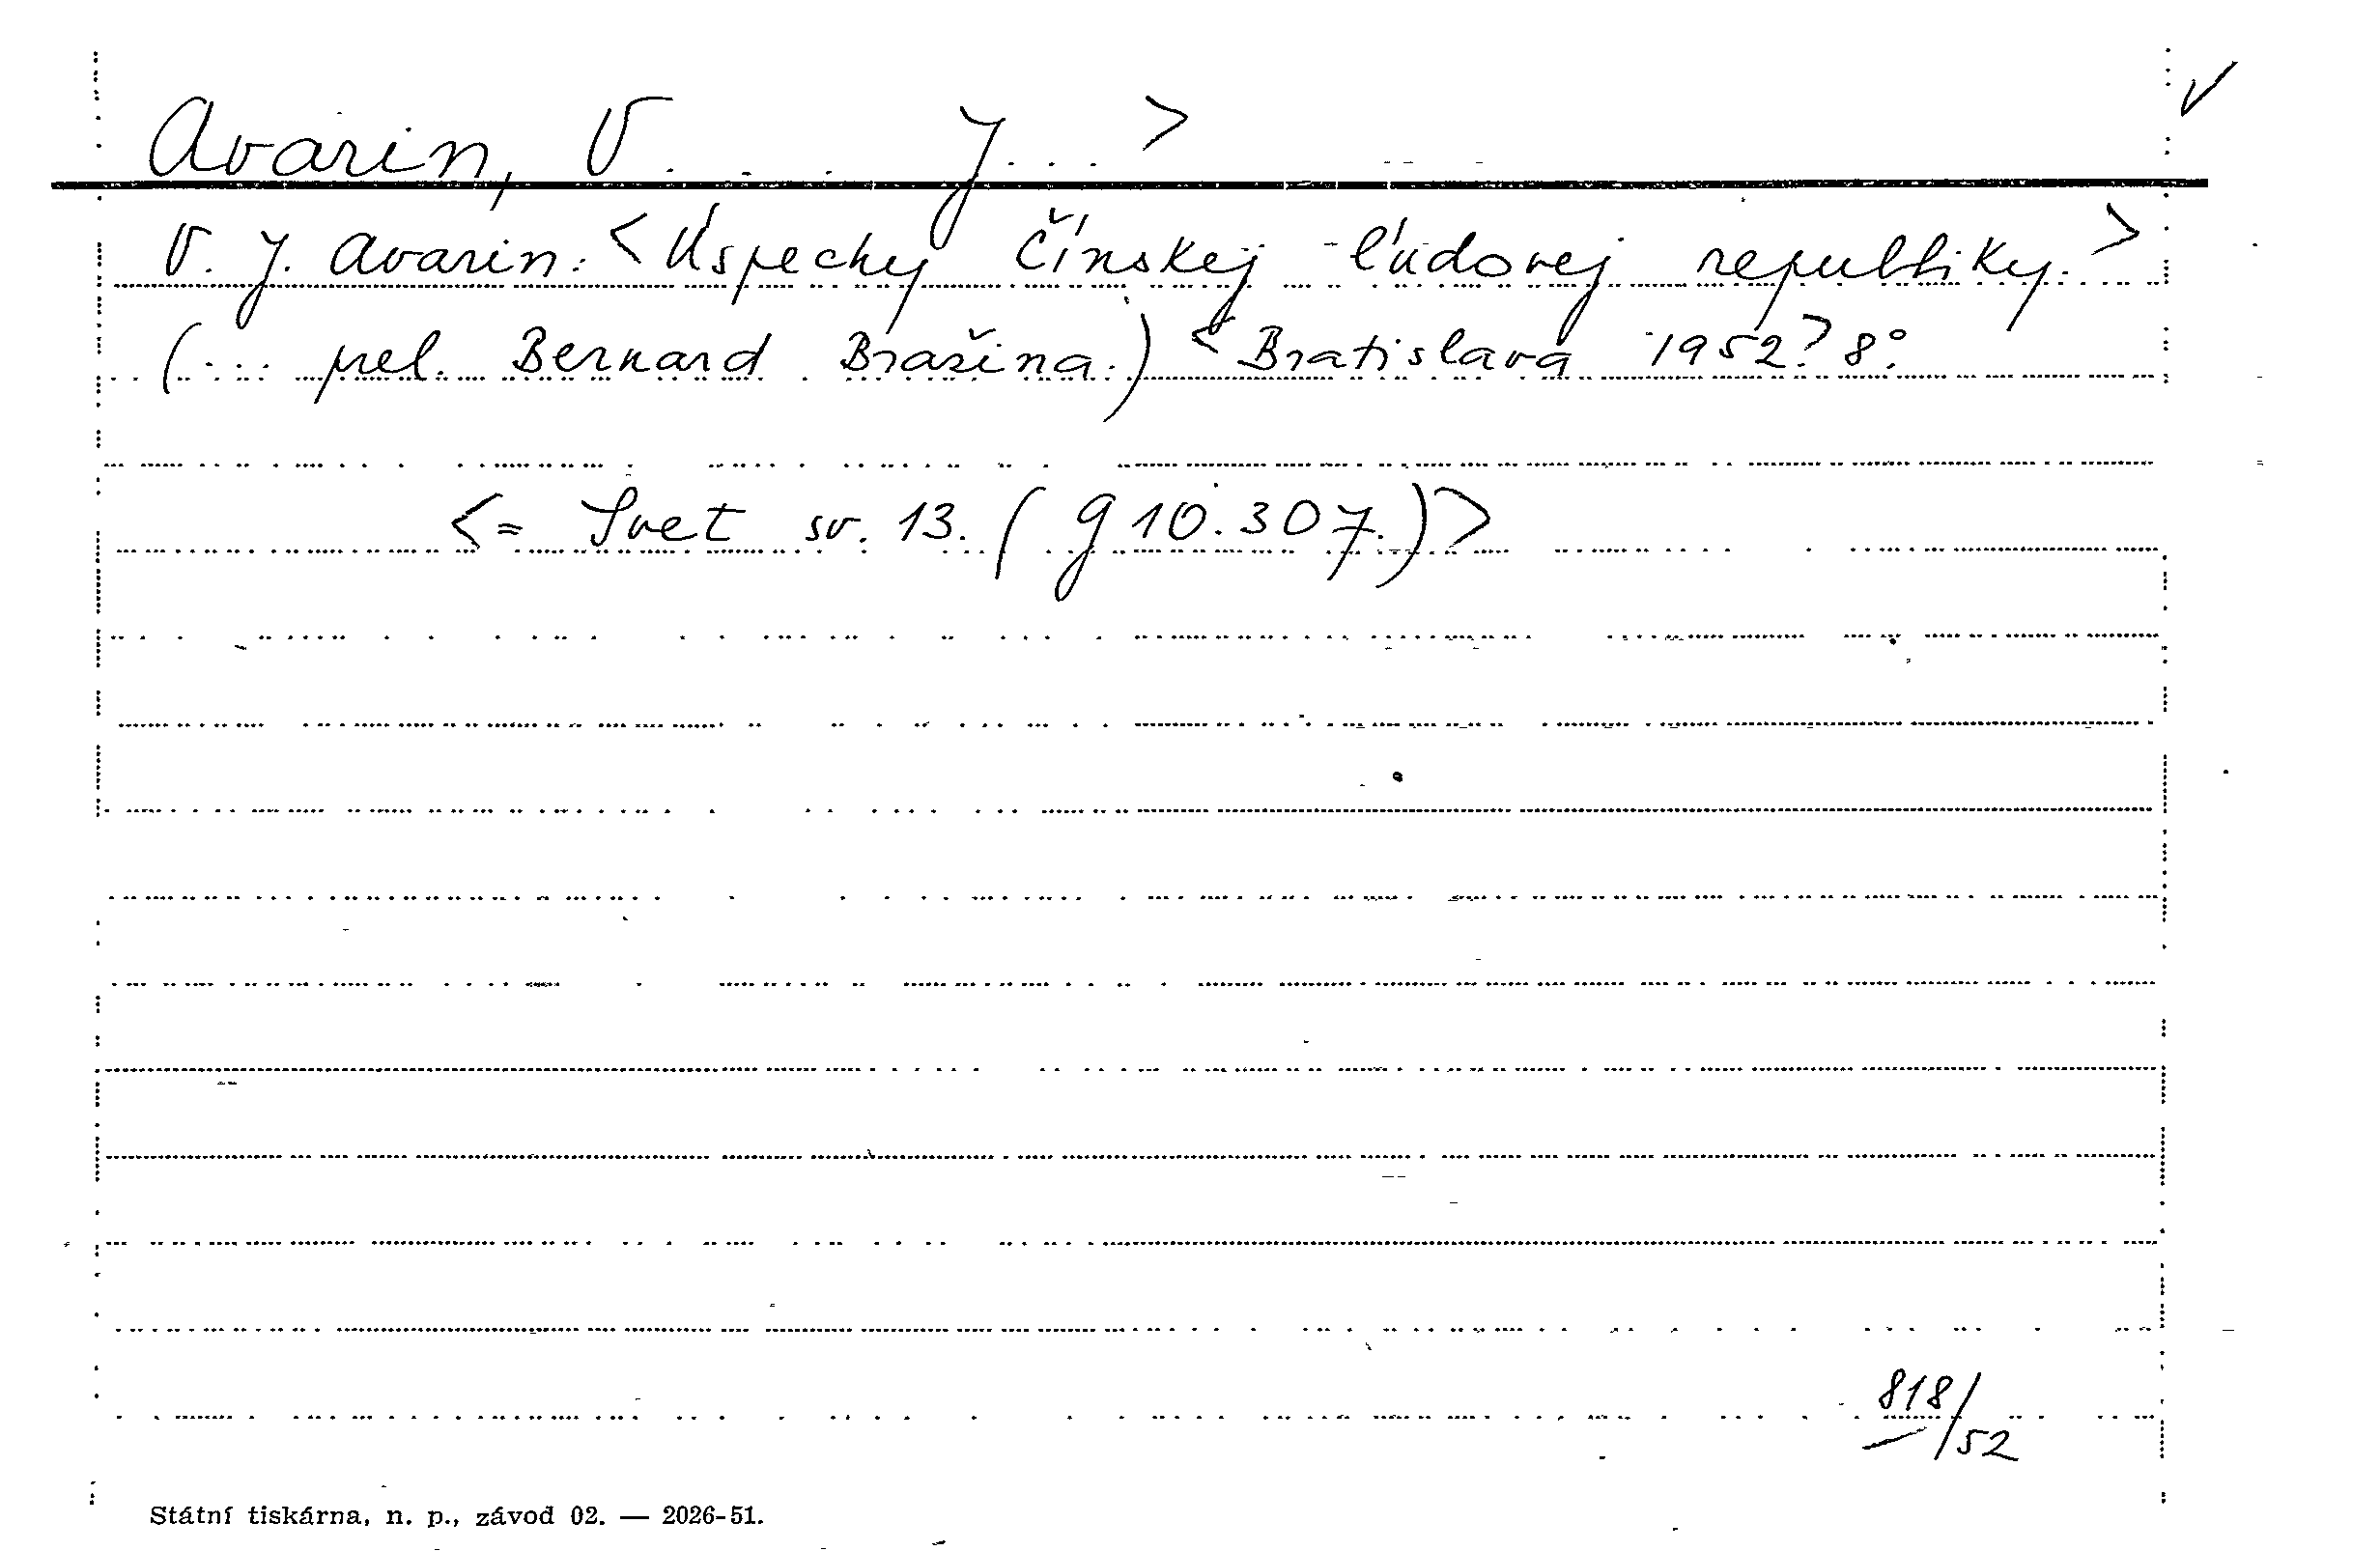 Avarin, V. . . . J. . . >
V. J. Avarin: <Úspechy Čínskej ľudovej republiky.>
(... prel. Bernard Brašina.) <Bratislava 1952> 8°.
<= Svet sv. 13. (g 10.307.)>
818/52
Státní tiskárna, n. p., závod 02. — 2026-51.